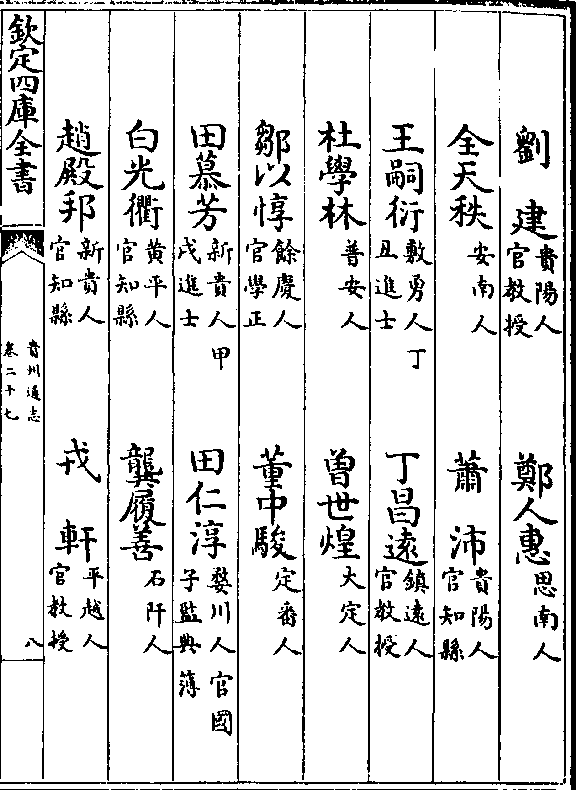 劉建貴陽人官教授　鄭人惠思南人
全天秩安南人　蕭沛貴陽人官知縣
王嗣衍敷勇人丁丑進士　丁昌遠鎮遠人官教授
杜學林普安人　曽世煌大定人
鄒以惇餘慶人官學正　董中駿定番人
田慕芳新貴人甲戌進士　田仁淳婺川人官國子監典簿
白光衢黄平人官知縣　龔履善石阡人
趙殿邦新貴人官知縣　戎軒平越人官教授
欽定四庫全書
貴州通志
卷二十七
八